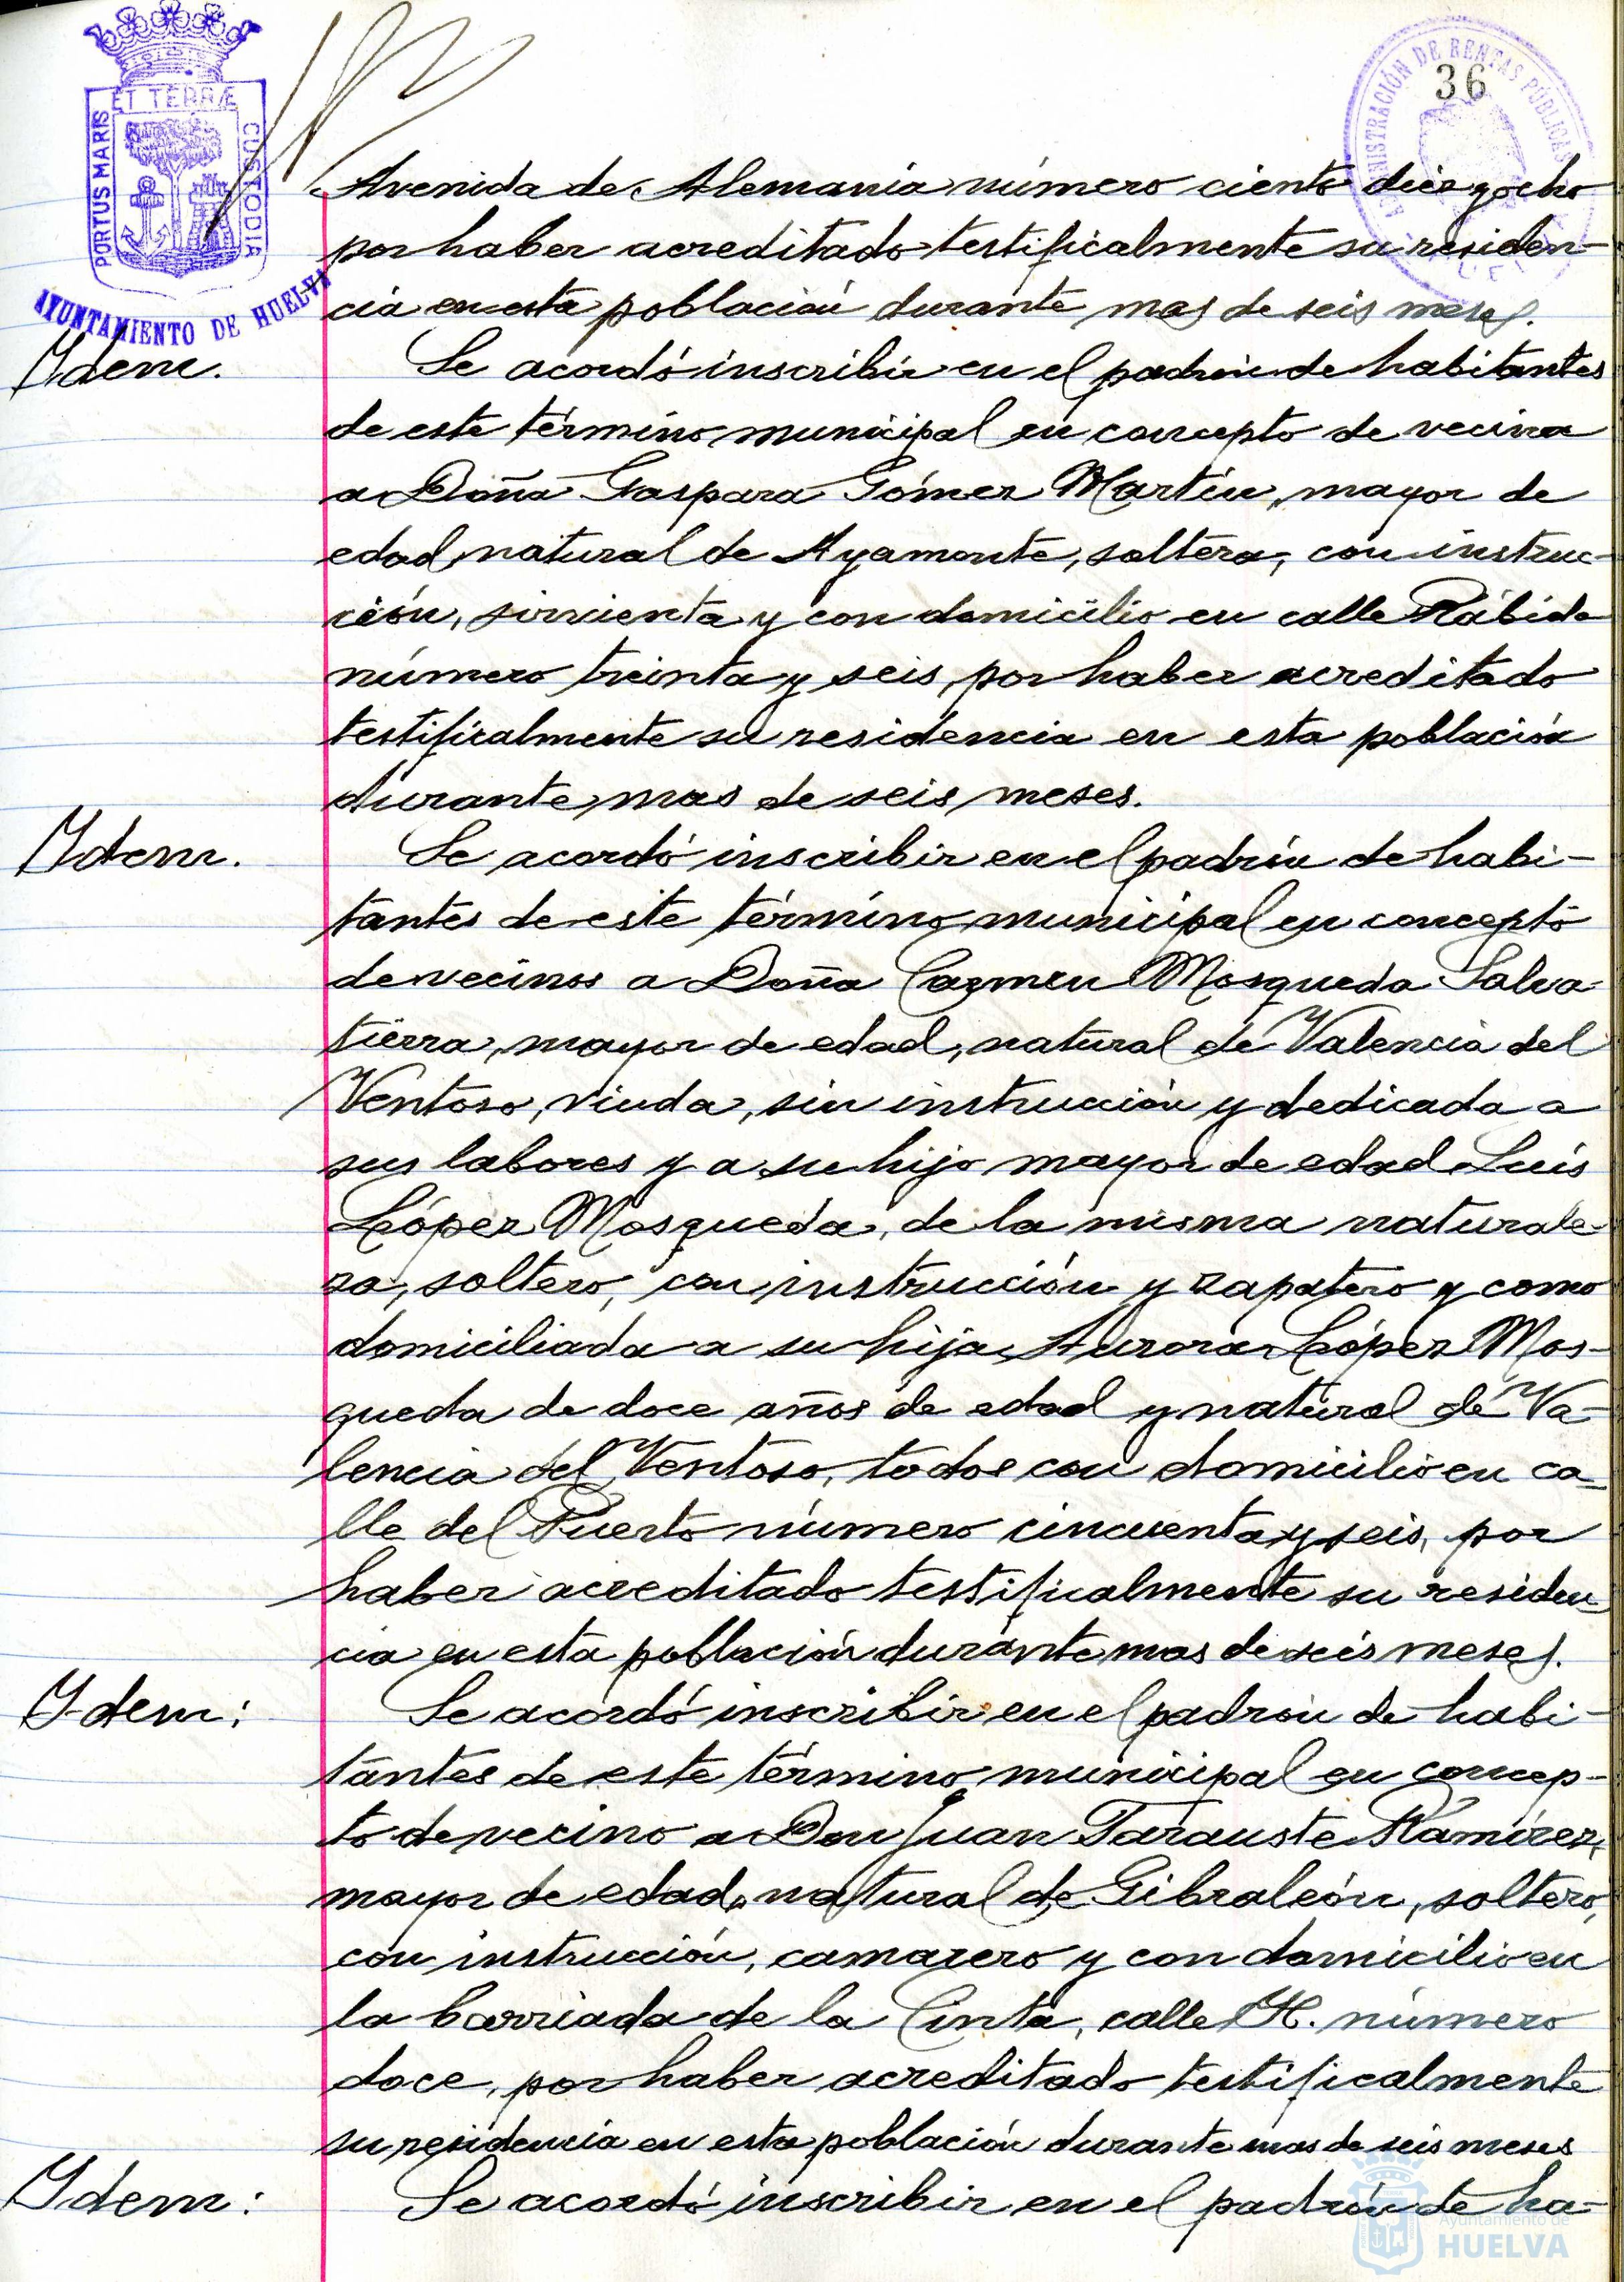 ET TERRÆ
PORTUS MARIS
CUSTODIA
AYUNTAMIENTO DE HUELVA
ADMINISTRACIÓN DE RENTAS PUBLICAS
36
Avenida de Alemania número ciento diez y ocho
por haber acreditado testificalmente su residen-
cia en esta población durante mas de seis meses.
Idem.
Se acordó inscribir en el padrón de habitantes
de este término municipal en concepto de vecina
a Doña Gaspara Gómez Martín, mayor de
edad, natural de Ayamonte, soltera, con instruc-
ción, sirvienta y con domicilio en calle Rábida
número treinta y seis, por haber acreditado
testificalmente su residencia en esta población
durante mas de seis meses.
Idem.
Se acordó inscribir en el padrón de habi-
tantes de este término municipal en concepto
de vecinos a Doña Carmen Mosqueda Salva-
tierra, mayor de edad, natural de Valencia del
Ventoso, viuda, sin instrucción y dedicada a
sus labores y a su hijo mayor de edad Luis
López Mosqueda, de la misma naturale-
za, soltero, con instrucción y zapatero y como
domiciliada a su hija Aurora López Mos-
queda de doce años de edad y natural de Va-
lencia del Ventoso, todos con domicilio en ca-
lle del Puerto número cincuenta y seis, por
haber acreditado testificalmente su residen-
cia en esta población durante mas de seis meses.
Idem:
Se acordó inscribir en el padrón de habi-
tantes de este término municipal en concep-
to de vecino a Don Juan Tarauste Ramírez,
mayor de edad, natural de Gibraleón, soltero,
con instrucción, camarero y con domicilio en
la barriada de la Cinta, calle H. número
doce, por haber acreditado testificalmente
su residencia en esta población durante mas de seis meses
Idem:
Se acordó inscribir en el padrón de ha-
Ayuntamiento de
HUELVA